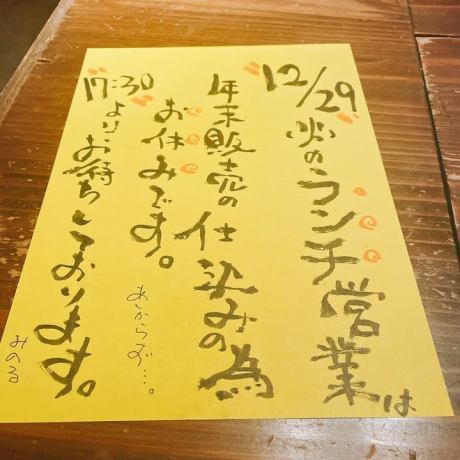 12/29火のランチ営業は
年末販売の仕込みの為
お休みです。
17:30
よりお待ちしております。
あしからず…。
みのる